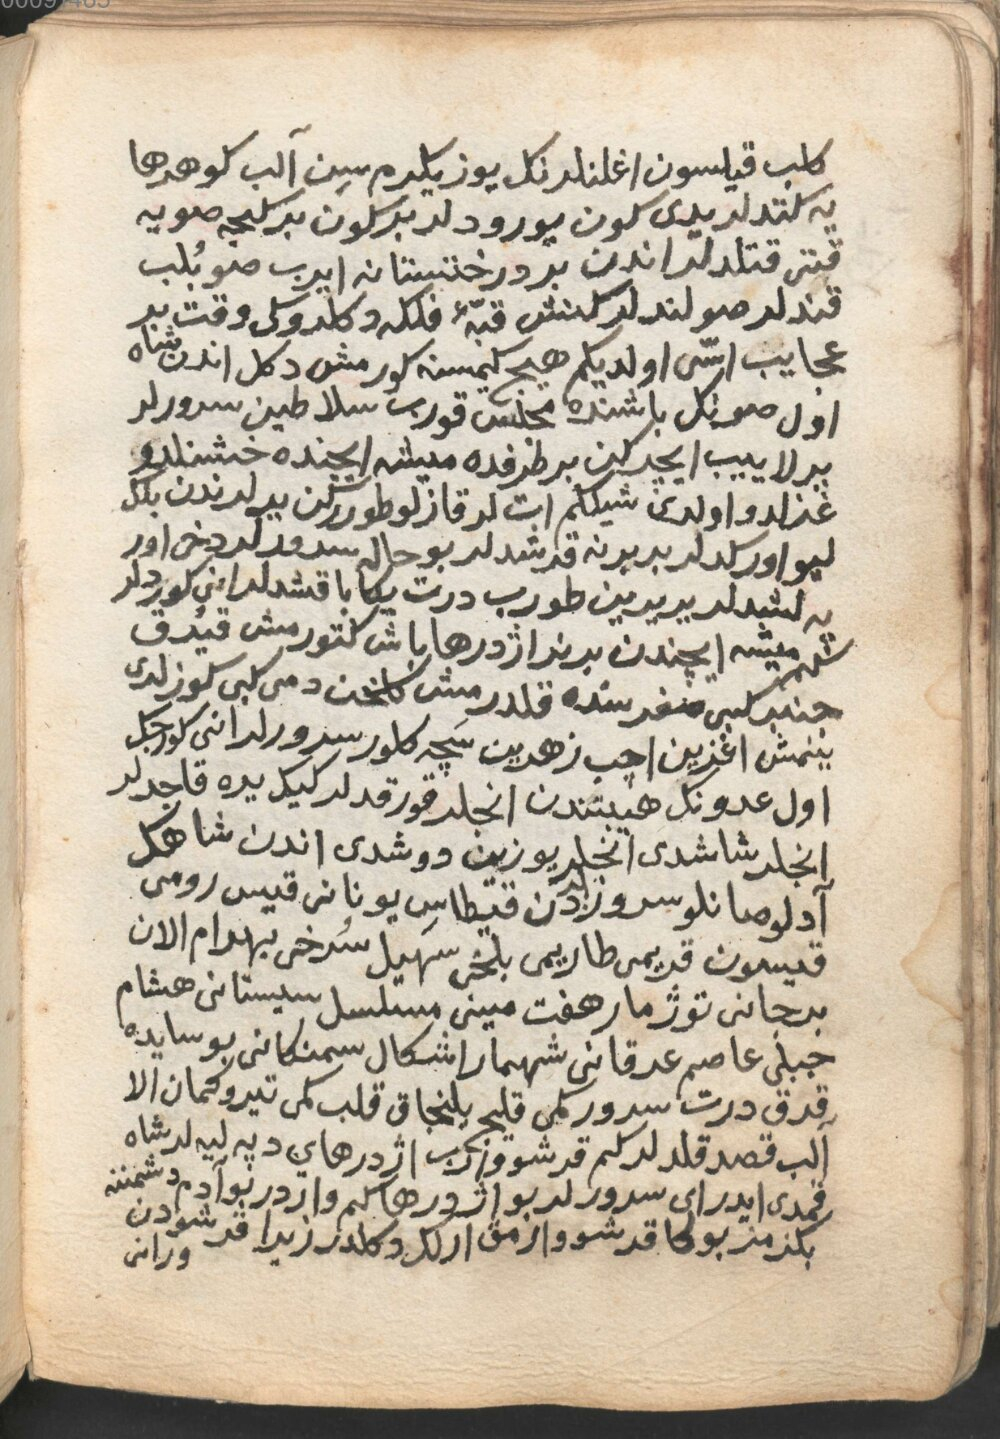 كلب قيلسون اغلنلرنك يوز يكرم سين آلب كوهرها
يه كتدلر يدى كون يورودلر بر كون بر كيجه صويه
قتى قتلدلر اندن بر درختستانه ايرب صو بُلب
قندلر صولندلر كنش قبّهٔ فلكه دكلدوكى وقت بر
عجايب اسّى اولديكم هيچ كيمسنه كورمش دكل اندن شاه
اول صونك باشنده مجلس قورب سلاطين سرورلر
بيرلا ييب ايچركن بر طرفده ميشه ايچنده خشنلدو
غزلدو اولدى شيلكم ات لر قازلو طورركن يرلرندن بلك
ليو اوركدلر بر برنه قرشدلر بو حاله سرورلر دخى اور
يه لشدلر ير يرين طورب درت يكا باقشدلر انى كوردلر
شلم ميشه ايچندن بر بند اژدرها باش كتورمش قيرق
چنبر كبى صغرسنده قلدرمش كلخن دمى كبى كوزلرى
ينمش اغزين اچب زهرين سَچه كلور سرورلر انى كورجك
اول عدونك هيبتندن انجلر قورقدلر كيك يره قاچدلر
انجلر شاشدى انجلر يوزين دوشدى اندن شاهك
آدلو صانلو سرورلردن قيطاس يونانى قيس رومى
قيسون قريمى طاريمى بلخى سهيل سُرخى بهرام الان
برجانى توژ مار هفت مينى مسلسل سيستانى هشام
جبلى عاصم عدقانى شهمار اشكال سمنكانى بو سايده
قرق درت سرور كمى قليج يلنجاق قلب كمى تيروكمان الا
الب قصد قلدلر كم قرشو وارب اژدرهاى دپه ليه لر شاه
قمدى ايدر اى سرورلر بو اژدرها كم واردر بو آدم دشمننه
بكزمز بوكا قرشو وارمق ارلك دكلدر زيرا قرشودن
ورانى